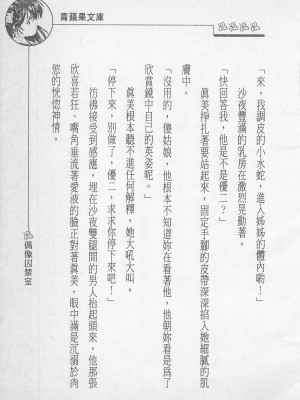 青蘋果文庫
「來，我調皮的小水蛇，進入姊姊的體內喲！」
沙夜豐滿的乳房在激烈晃動著。
「快回答我，他是不是優二？」
眞美掙扎著要站起來，固定手腳的皮帶深深掐入她細膩的肌
膚中。
「沒用的，傻姑娘，他根本不知道妳在看著他，他朝妳看是爲了
欣賞鏡中自己的英姿呢。」
眞美根本聽不進任何解釋，她大吼大叫。
「停下來，別做了，優二，求求你停下來吧！」
彷彿接受到感應，埋在沙夜雙腿間的男人抬起頭來，他那張
欣喜若狂、嘴角垂流著愛液的臉正對著眞美，眼中滿是沉溺於肉
慾的恍惚神情。
偶像囚禁室